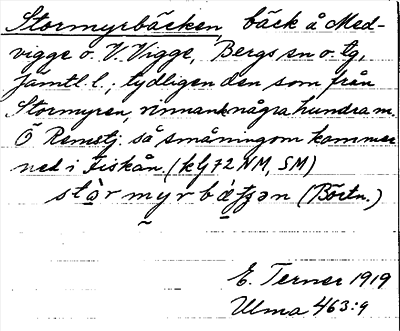 Stormyrbäcken, bäck å Med-
vigge o. V. Vigge, Bergs sn o. tg,
Jämtl. l.; tydligen den som från
Stormyren, rinnande några hundra m.
Ö Remstj. så småningom kommer
ned i Fiskån. (kbl 72 NM, SM)
stòrmyrbætʃən (Börtn.)
E. Terner 1919
Ulma 463:9